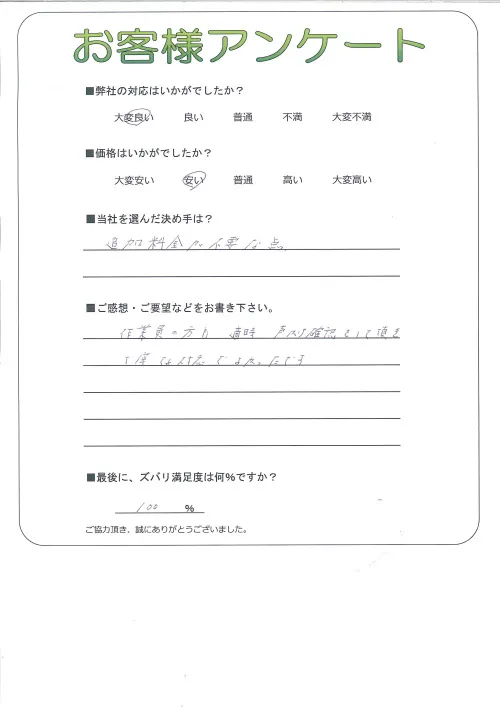 お客様アンケート
■弊社の対応はいかがでしたか？
大変良い 良い 普通 不満 大変不満
■価格はいかがでしたか？
大変安い 安い 普通 高い 大変高い
■当社を選んだ決め手は？
追加料金が不要な点。
■ご感想・ご要望などをお書き下さい。
作業員の方も 適時 声かけ確認をして頂き
丁寧な対応でよかったです
■最後に、ズバリ満足度は何%ですか？
100 %
ご協力頂き、誠にありがとうございました。